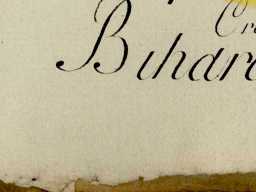 Cr
Bihar